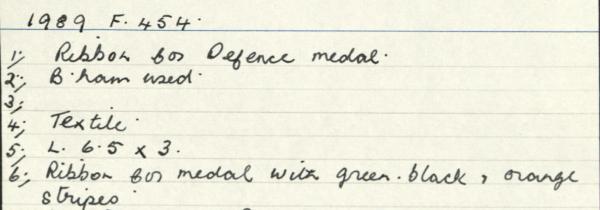 1989 F. 454.
1; Ribbon for Defence medal.
2; B'ham used.
3;
4; Textile.
5; L. 6.5 x 3.
6; Ribbon for medal with green. black, orange
stripes